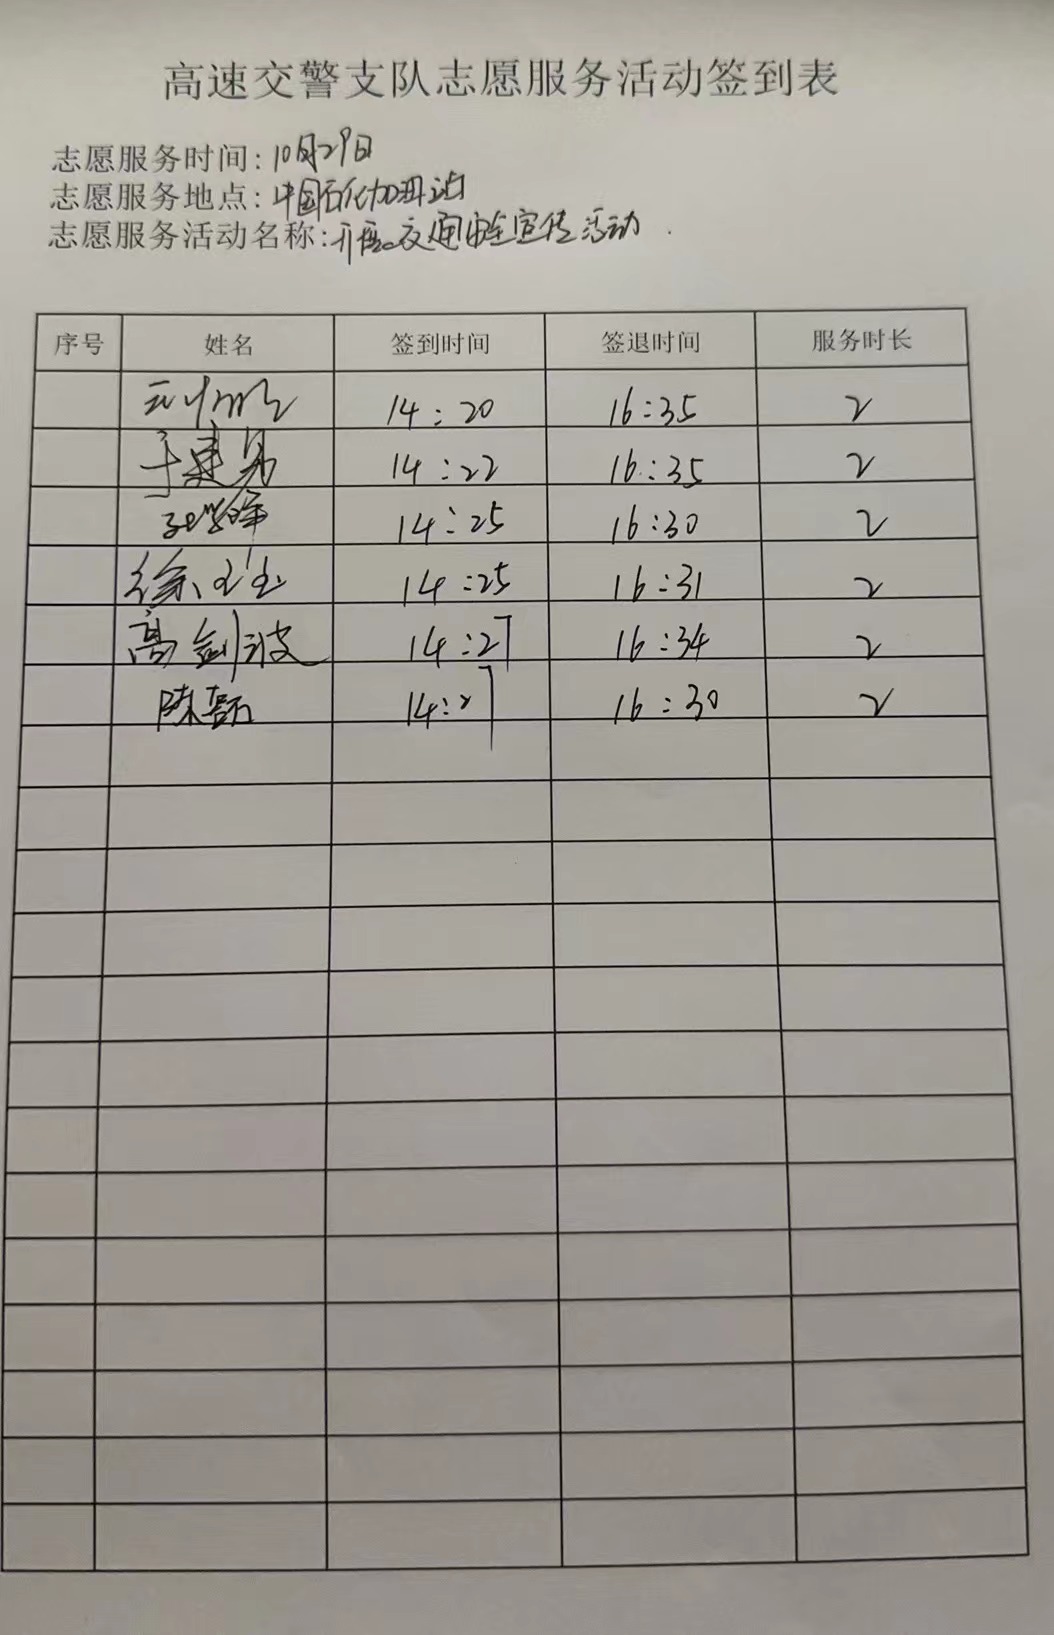 高速交警支队志愿服务活动签到表
志愿服务时间:10月29日
志愿服务地点:中国石化加油站
志愿服务活动名称:开展交通安全宣传活动.
序号 姓名 签到时间 签退时间 服务时长
14:20 16:35 2
于建 14:22 16:35 2
14:25 16:30 2
徐 14:25 16:31 2
高剑波 14:27 16:34 2
陈磊 14:27 16:30 2